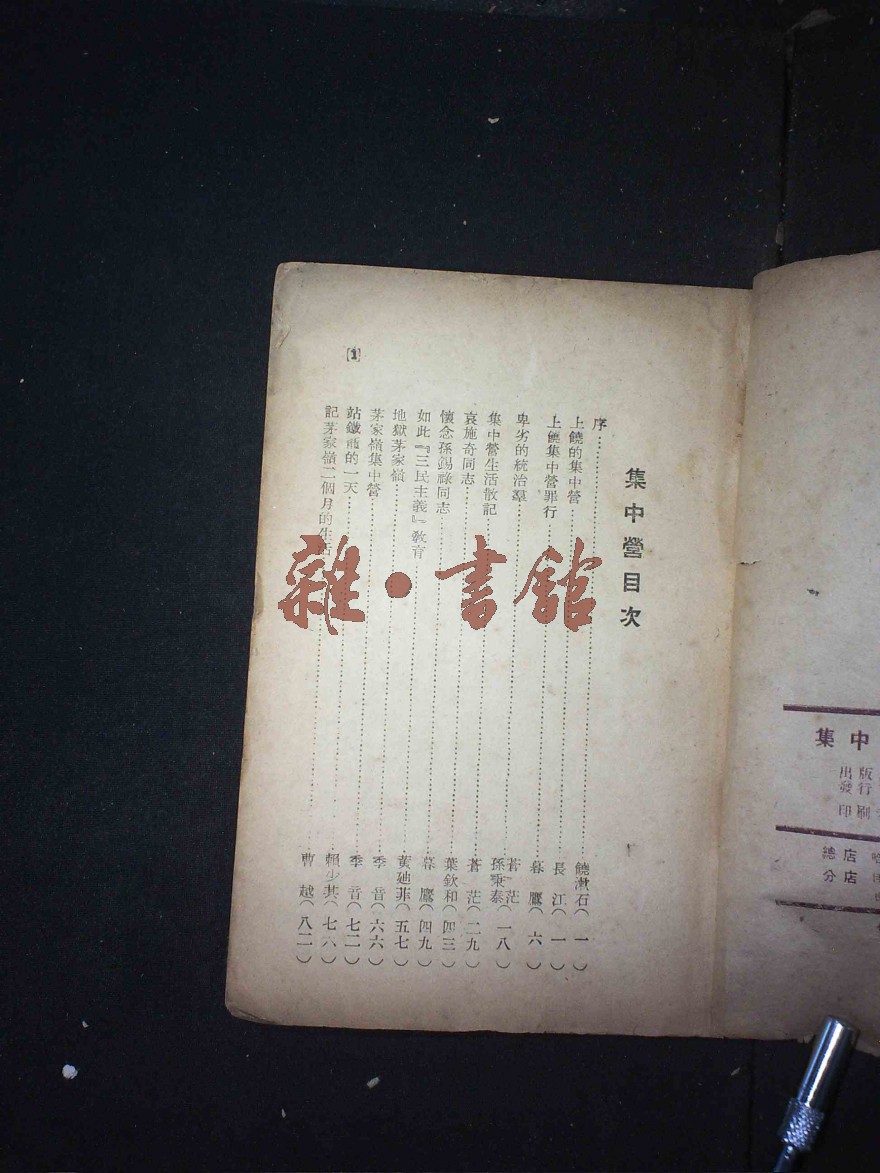 集中營目次
序……饒漱石(一)
上饒的集中營……長江(一)
上饒集中營罪行……暮鷹(六)
卑劣的統治羣……蒼茫 孫秉泰(一八)
集中營生活散記……蒼茫(二九)
哀施奇同志……葉欽和(四三)
懷念孫錫祿同志……暮鷹(四九)
如此『三民主義』教育……黃迪菲(五七)
地獄茅家嶺……季音(六六)
茅家嶺集中營……季音(七二)
站鐵籠的一天……賴少其(七六)
記茅家嶺二個月的生活……曹越(八二)
[1]
雜·書館
集中
出版
發行
印刷
總店
分店